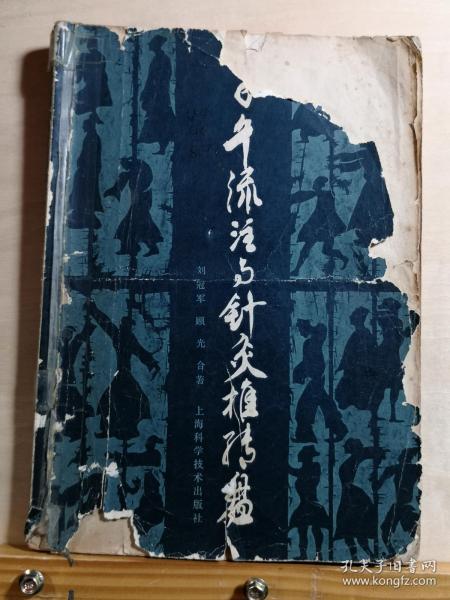 午流注与針灸推转盘
刘冠军 顾光 合著 上海科学技术出版社
孔夫子旧书网
www.kongfz.com